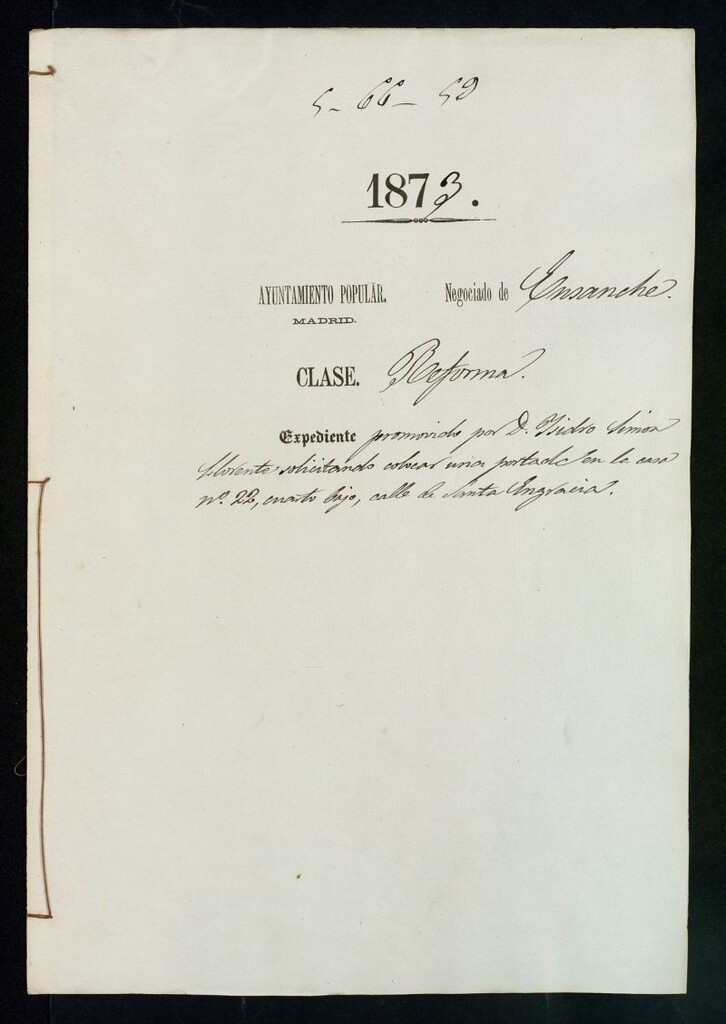 5-66-59
1873.
AYUNTAMIENTO POPULAR. Negociado de Ensanche.
MADRID.
CLASE. Reforma.
Expediente promovido por D. Isidro Simon
Llorente solicitando colocar una portada en la casa
nº. 22, cuarto bajo, calle de Santa Engracia.